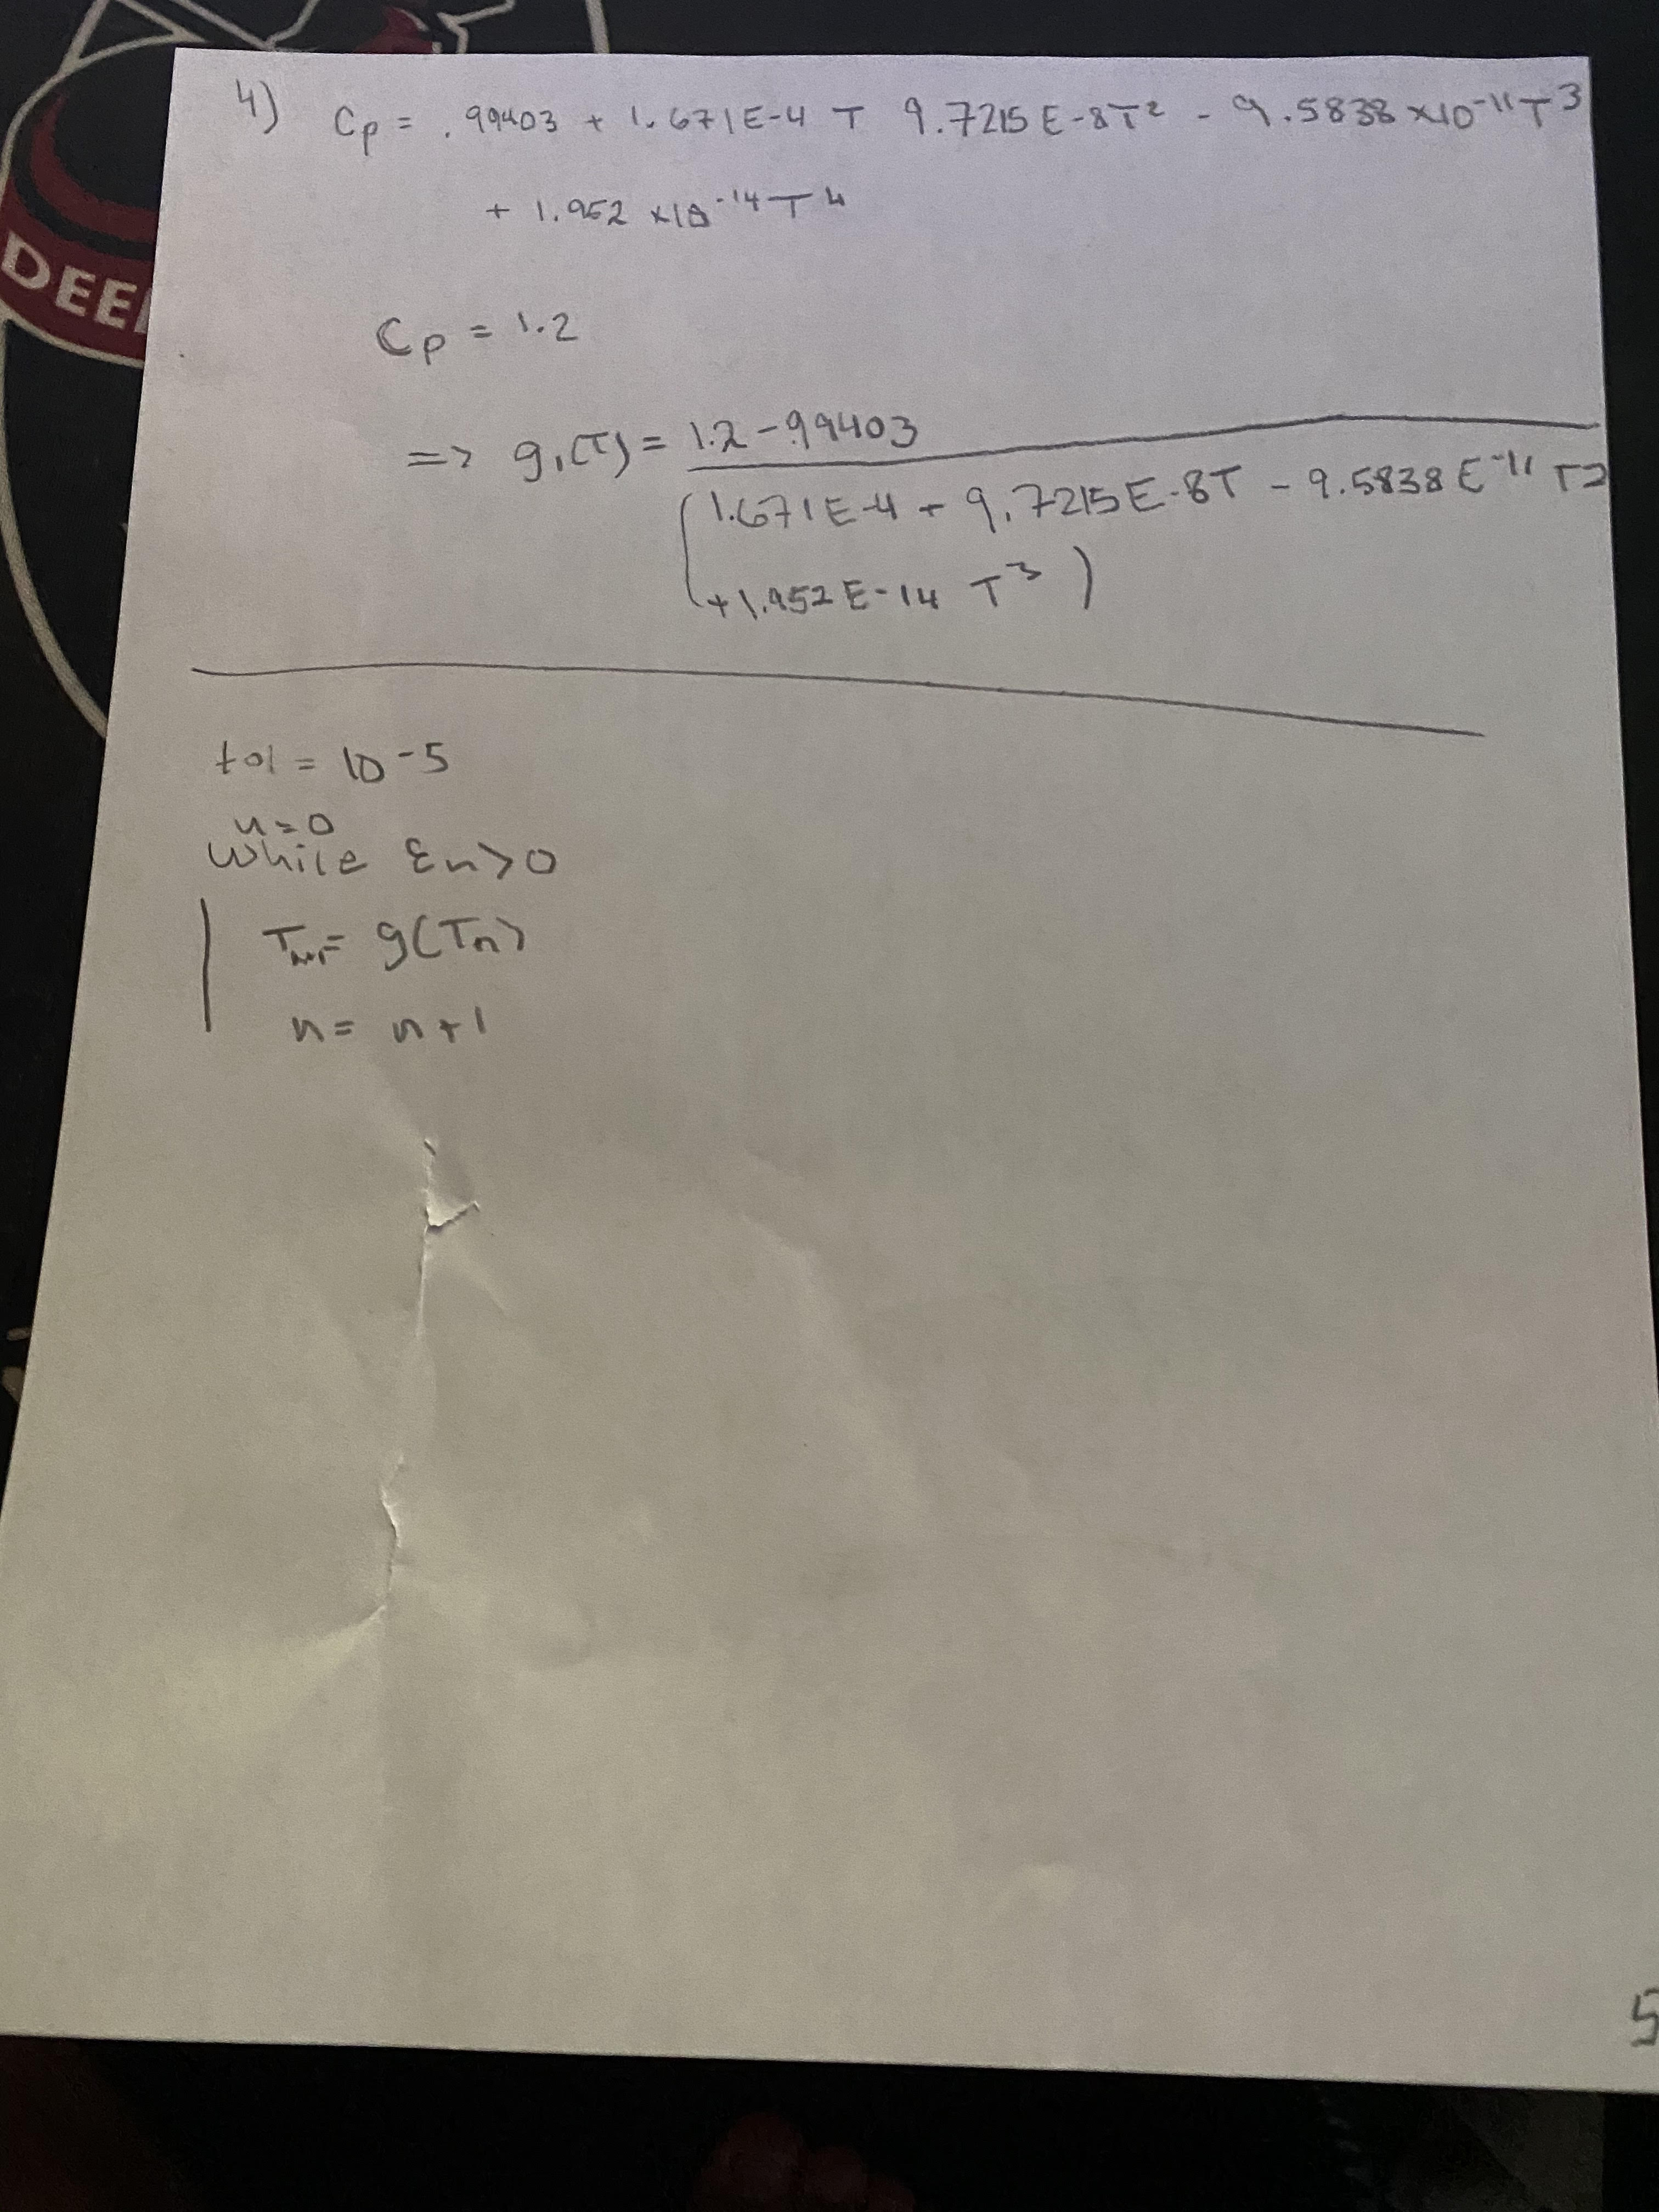 4) Cp = .99403 + 1.671E-4 T 9.7215E-8T² - 9.5838 ×10⁻¹¹T³
+ 1.952 ×10⁻¹⁴T⁴
DEE
Cp = 1.2
=> g₁(T) = 1.2 - .99403
(1.671E-4 + 9.7215E-8T - 9.5838E⁻¹¹ T2
+1.952E-14 T³)
tol = 10⁻⁵
n=0
while εn>0
Tₙ₊₁= g(Tn)
n = n+1
5